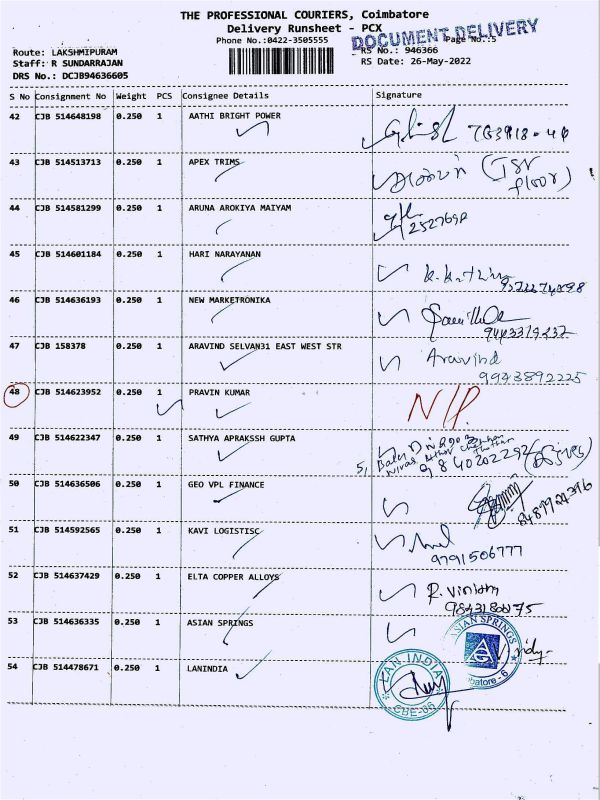 THE PROFESSIONAL COURIERS, Coimbatore
Delivery Runsheet - PCX
DOCUMENT DELIVERY
Phone No.:0422-3505555 Page No.:5
Route: LAKSHMIPURAM RS No.: 946366
Staff: R SUNDARRAJAN RS Date: 26-May-2022
DRS No.: DCJB94636605
S No Consignment No Weight PCS Consignee Details Signature
42 CJB 514648198 0.250 1 AATHI BRIGHT POWER
43 CJB 514513713 0.250 1 APEX TRIMS
floor)
44 CJB 514581299 0.250 1 ARUNA AROKIYA MAIYAM
45 CJB 514601184 0.250 1 HARI NARAYANAN
46 CJB 514636193 0.250 1 NEW MARKETRONIKA
47 CJB 158378 0.250 1 ARAVIND SELVAN31 EAST WEST STR Aravind
9943892225
48 CJB 514623952 0.250 1 PRAVIN KUMAR
49 CJB 514622347 0.250 1 SATHYA APRAKSSH GUPTA
9840202292
50 CJB 514636506 0.250 1 GEO VPL FINANCE
51 CJB 514592565 0.250 1 KAVI LOGISTISC
9791506777
52 CJB 514637429 0.250 1 ELTA COPPER ALLOYS
53 CJB 514636335 0.250 1 ASIAN SPRINGS
ASIAN SPRINGS
54 CJB 514478671 0.250 1 LANINDIA
LAN INDIA
CBE-06